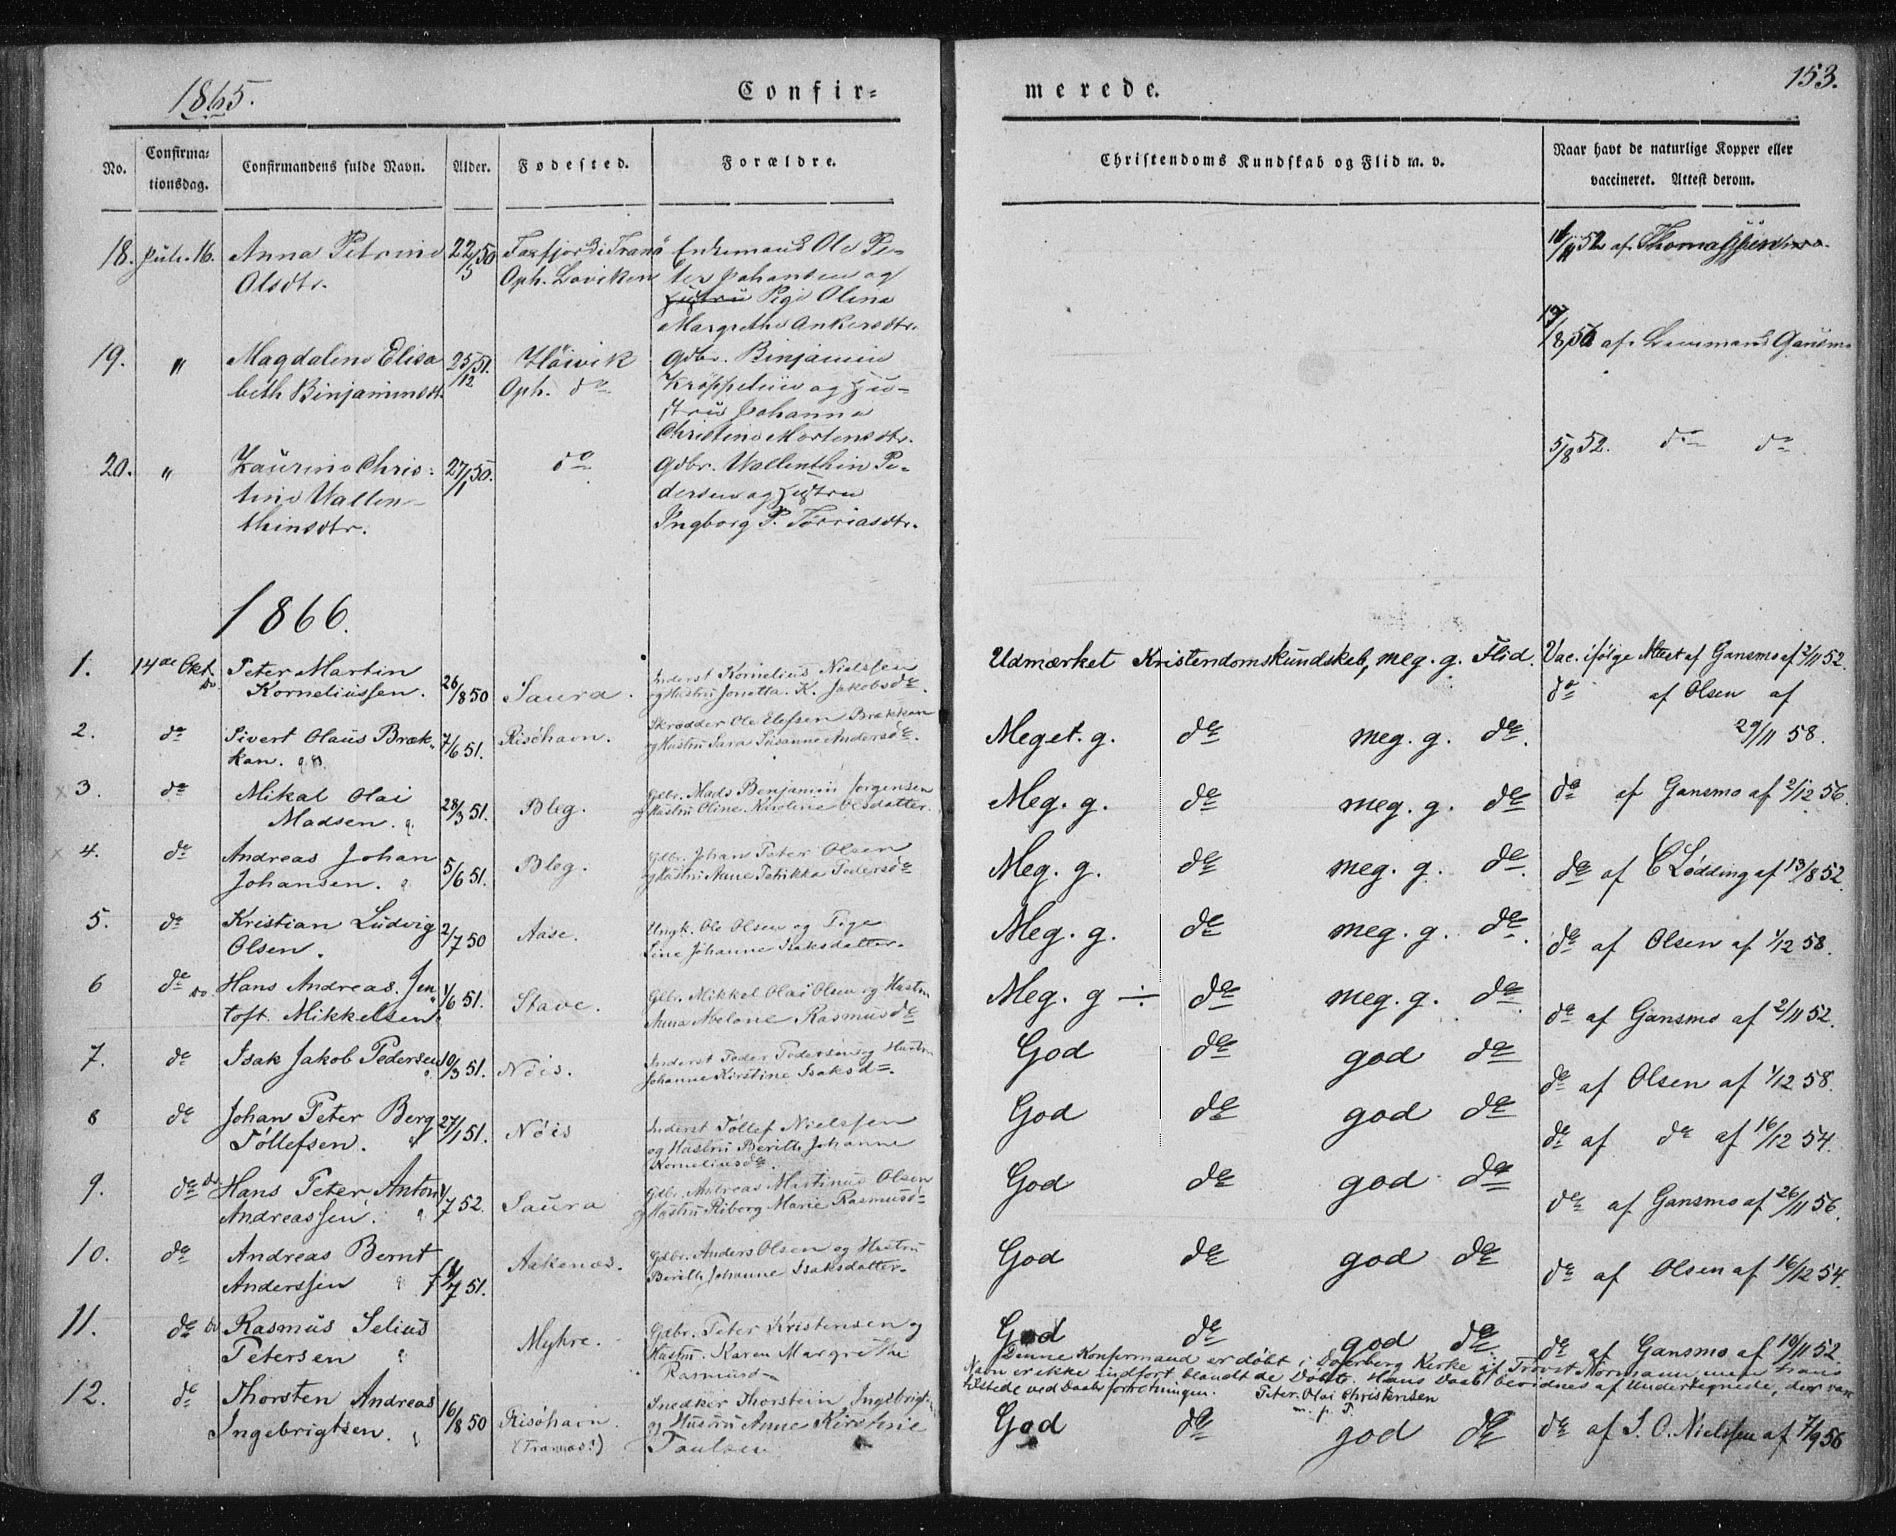 1865.
Confir-
merede.
153.
No.
Confirma-
tionsdag.
Confirmandens fulde Navn.
Alder.
Fødested.
Forældre.
Christendoms Kundskab og Flid m. v.
Naar havt de naturlige Kopper eller
vaccineret. Attest derom.
18. Juli 16. Anna Petrine 22/5 50 i Tranö Enkemand Ole Pe-
Olsdtr. Oph. Loviken ter Johansen og
Pige Olina
Margrethe Ankersdtr.
52 af Thomassen
19. " Magdalene Elisa 25/12 51. Höivik Gdbr. Binjamin
beth Binjaminsdt. Oph. do og Hu-
stru Johanna
Christine Mortensdtr.
af Lensmand Gansmo
20. " Laurine Chris- 27/1 50. do Gdbr. Vallenthin Pe-
tine Vallen- dersen og Hustru
thinsdtr. Ingborg P. Torriasdtr.
5/8 52. do do
1866.
1. 14de Okt. Peter Martin 26/8 50 Saura. Inderst Kornelius Nielssen
Korneliussen. og Hustru Jonetta. K. Jakobsd.
Udmærket Kristendomskundskab, meg. g. Flid. Vac. ifölge Attest af Gansmo af 2/11 52.
2. do Sivert Olaus Bræk- 7/6 51. Risöhavn. Skrædder Ole Elefsen Brækkan
kan. og Hustru Sara Susanne Andersd.
Meget. g. do meg. g. do.
do af Olsen af
29/11 58.
3. do Mikal Olai 28/3 51. Bleg. Gdbr. Mads Benjamin Jørgensen
Madsen. og Hustru Oline Karoline Olsdatter.
Meg. g. do meg. g. do do af Gansmo af 2/12 56.
4. do Andreas Johan 5/6 51. Bleg. Gdbr. Johan Peter Olsen
Johansen. og Hustru Anne Petrikka Pedersd
Meg. g. do meg. g. do. do af C Lødding af 13/8 52.
5. do Kristian Ludvig 2/7 50 Aase. Ungk. Ole Olsen og Pige
Olsen. Line Johanne Isaksdatter.
Meg. g. do meg. g. do. do af Olsen af 1/12 58.
6 do Hans Andreas. Jen 1/6 51. Stave. Gdbr. Mikkel Olai Olsen og Hustru
toft. Mikkelsen. Anna Abelone Rasmusd
Meg. g ÷ do meg. g. do do af Gansmo af 2/11 52.
7. do Isak Jakob Pedersen 10/3 51. Nöis. Inderst Peder Pedersen og Hustru
Johanne Kirstine Isaksd.
God do god do do af Olsen af 1/12 58.
8 do Johan Peter Berg 27/1 51. Nöis Inderst Töllef Nielssen
Töllefsen. og Hustru Berith Johanne
Korneliusd.
God do god do do af do af 16/12 54.
9. do Hans Peter Anton 1/7 52. Saura Gdbr. Andreas Martinus Olsen
Andreassen. og Hustru Riborg Marie Rasmusd
God do god do do af Gansmo af 26/11 56.
10. do Andreas Bernt 7 51. Aakenæs. Gdbr. Anders Olsen og Hustru
Anderssen Berith Johanne Isaksdatter.
God do god do do af Olsen af 16/12 54.
11. do Rasmus Selius Myhre. Gdbr. Peter Kristensen og
Petersen Hustru. Karen Margrethe
Rasmusd
God do god do do af Gansmo af 10/11 52.
Denne Konfirmand er døbt i Dverberg Kirke af Provst Normann, men hans
Navn er ikke indført blandt de Döbte. Hans Daab bevidnes af Undertegnede, der var
tilstede ved Daabsforretningen. Peter Olai Christensen
m. p. P.
12. do Thorsten Andreas 16/8 50 Risöhavn. Snedker Thorstein Ingebrigts.
Ingebrigtsen. (Tranæs!) og Hustru Anne Kirstine
Paulsen
God do god do do af S. O. Nielssen af 7/9 56